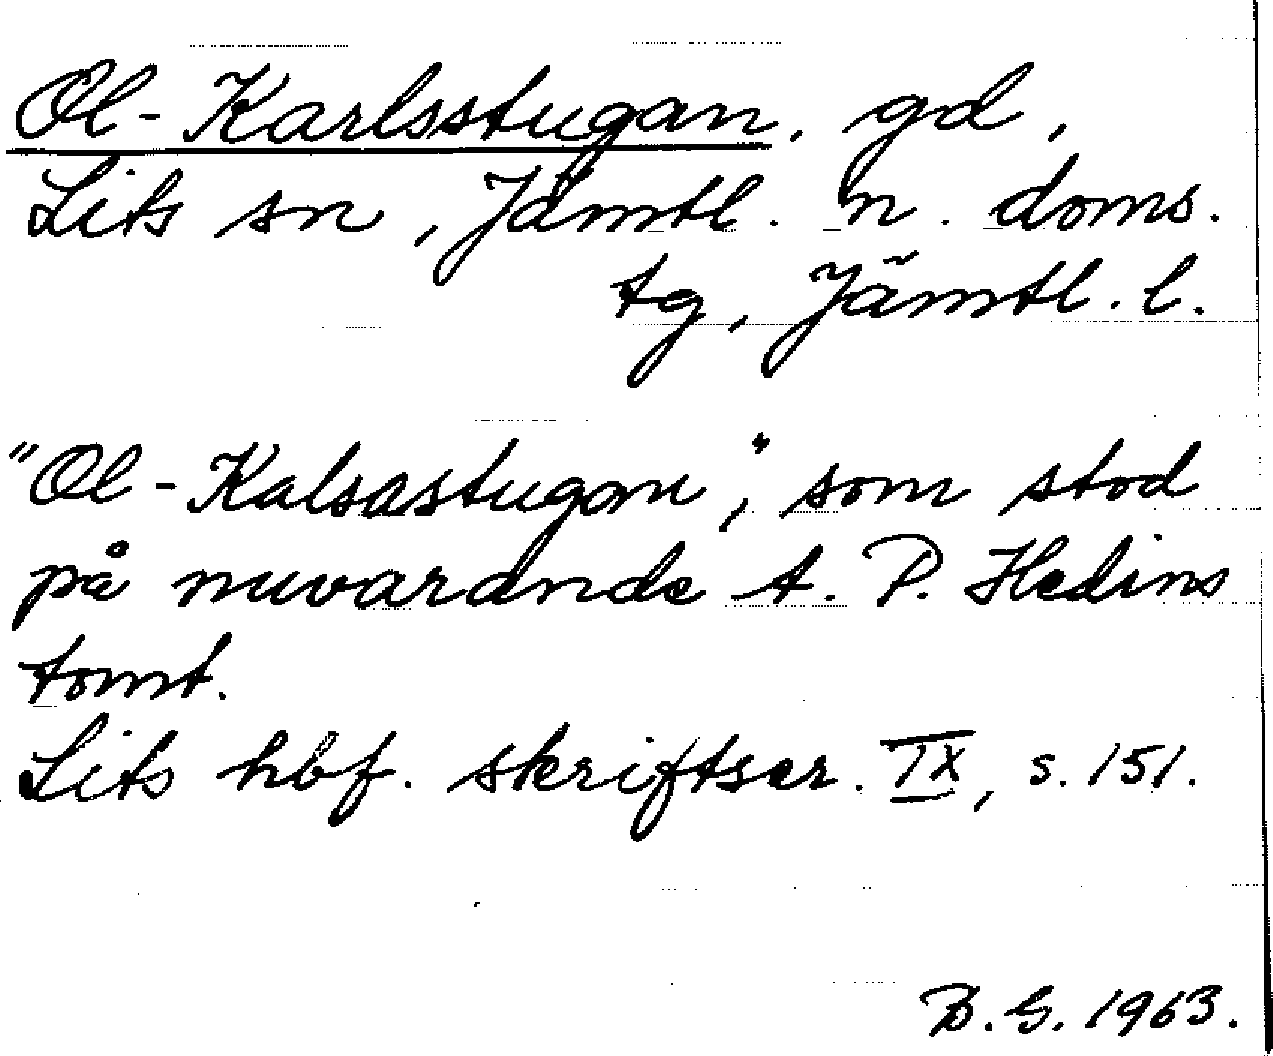 Ol-Karlsstugan, gd,
Lits sn, Jämtl. n. doms.
tg, Jämtl. l.
"Ol-Kalsastugom", som stod
på nuvarande A. P. Hedins
tomt.
Lits hbf. skriftser. IX, s. 151.
B. G. 1963.